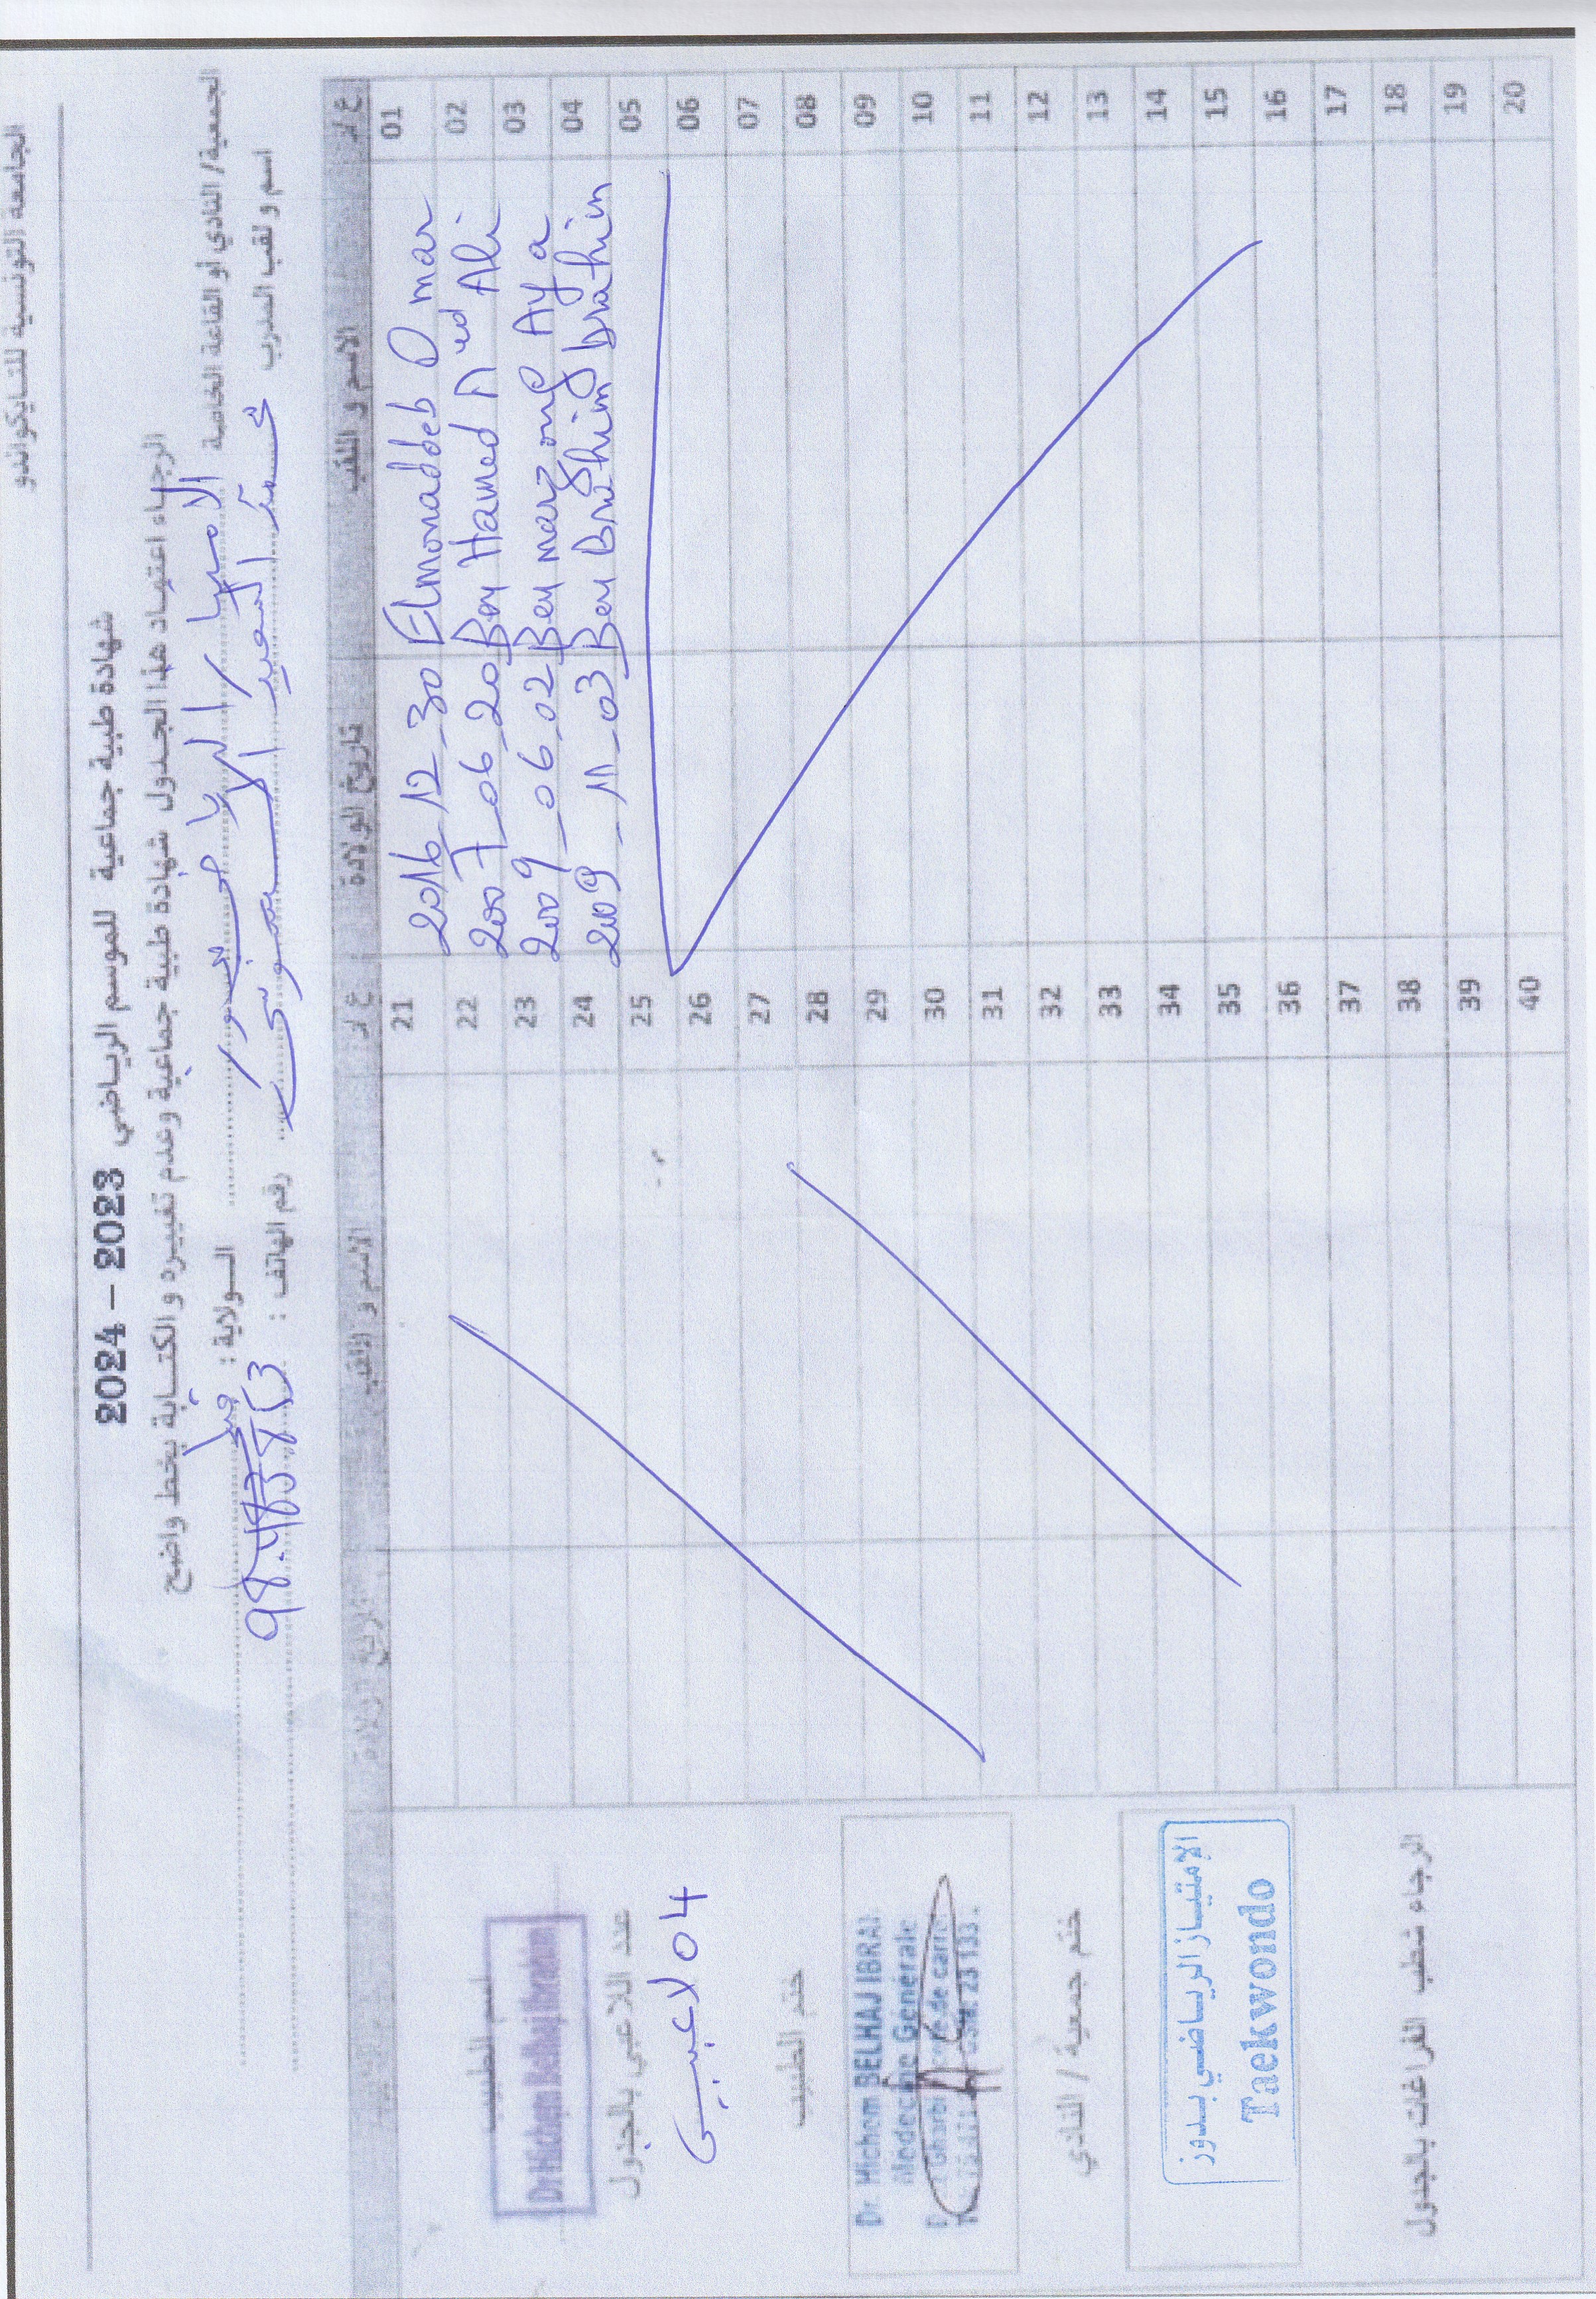 الجامعة التونسية للتايكواندو
شهادة طبية جماعية للموسم الرياضي 2023 – 2024
الرجاء اعتماد هذا الجدول شهادة طبية جماعية وعدم تغييره و الكتابة بخط واضح
الجمعية/ النادي أو القاعة الخاصة الامتياز الرياضي بدوز الولاية : قبلي
اسم و لقب المدرب محمد السعيد رقم الهاتف : 98.483813
ع/ر الاسم و اللقب تاريخ الولادة ع/ر الاسم و اللقب تاريخ الولادة
01 Elmonaddeb Omar 2016_12_30 21
02 Ben Hamed Med Ali 2007_06_20 22
03 Ben marzoug Aya 2009_06_02 23
04 Ben Brahim Brahim 2009_11_03 24
05 25
06 26
07 27
08 28
09 29
10 30
11 31
12 32
13 33
14 34
15 35
16 36
17 37
18 38
19 39
20 40
اسم الطبيب
Dr Hichem Belhaj Ibrahim
عدد اللاعبي بالجدول
04 لاعبين
ختم الطبيب
Dr. Hichem BELHAJ IBRAH
Médecine Générale
ختم جمعية / النادي
الإمتياز الرياضي بدوز
Taekwondo
الرجاء شطب الفراغات بالجدول